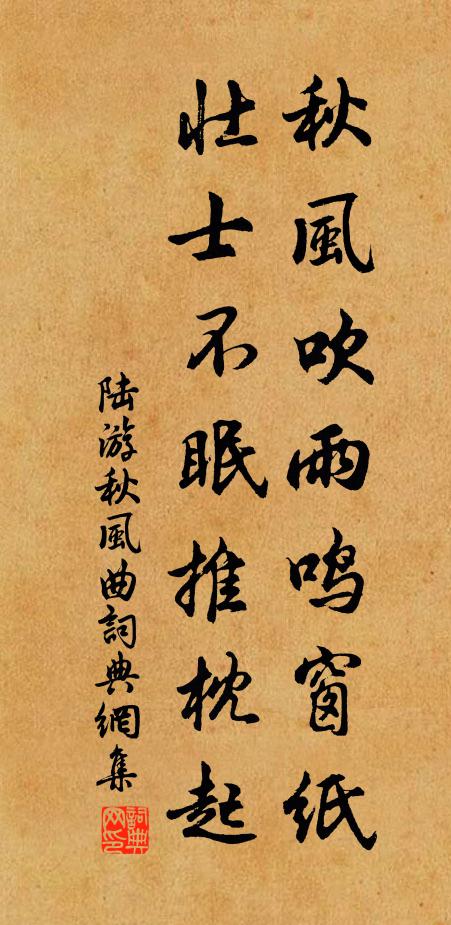 秋風吹雨鳴窗紙
壮士不眠推枕起
陆游秋風曲詞典網集
詞典网印